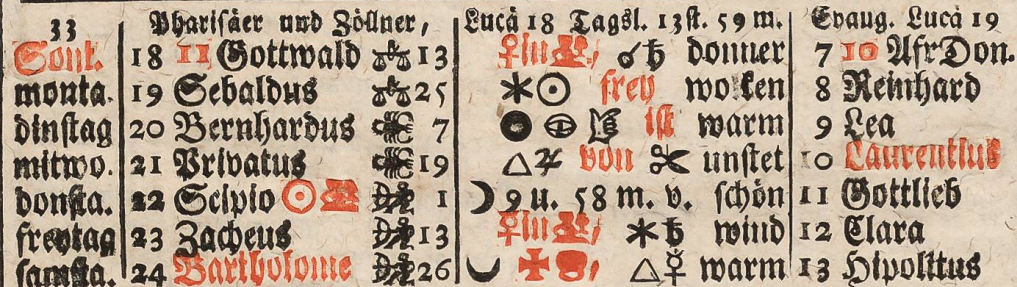 33 Pharisäer und Zöllner, Lucä 18 Tagsl. 13st. 59 m. Evang. Lucä 19
Sont. 18 11 Gottwald ♎ 13 ♀ in ♍, ☌ ♄ donner 7 10 Afr Don.
monta. 19 Sebaldus ♎ 25 ✶ ☉ frey wolken 8 Reinhard
dinstag 20 Bernhardus ♏ 7 ist warm 9 Lea
mitwo. 21 Privatus ♏ 19 △ ♃ von unstet 10 Laurentius
donsta. 22 Scipio ☉ ♍ ♐ 1 ☽ 9 u. 58 m. v. schön 11 Gottlieb
freytag 23 Zacheus ♐ 13 ♀ in ♍, ✶ ♄ wind 12 Clara
samsta. 24 Bartholome ♐ 26 △ ☿ warm 13 Hipolitus